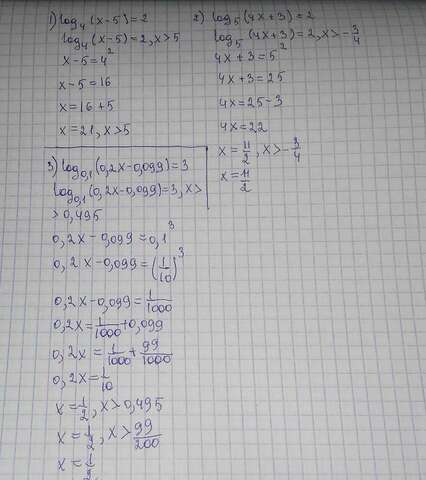 1) log₄(x-5)=2
log₄(x-5)=2, x>5
x-5=4²
x-5=16
x=16+5
x=21, x>5
2) log₅(4x+3)=2
log₅(4x+3)=2, x>-3/4
4x+3=5²
4x+3=25
4x=25-3
4x=22
x=11/2, x>-3/4
x=11/2
3) log₀,₁(0,2x-0,099)=3
log₀,₁(0,2x-0,099)=3, x>
>0,495
0,2x-0,099=0,1³
0,2x-0,099=(1/10)³
0,2x-0,099=1/1000
0,2x=1/1000+0,099
0,2x=1/1000+99/1000
0,2x=1/10
x=1/2, x>0,495
x=1/2, x>99/200
x=1/2